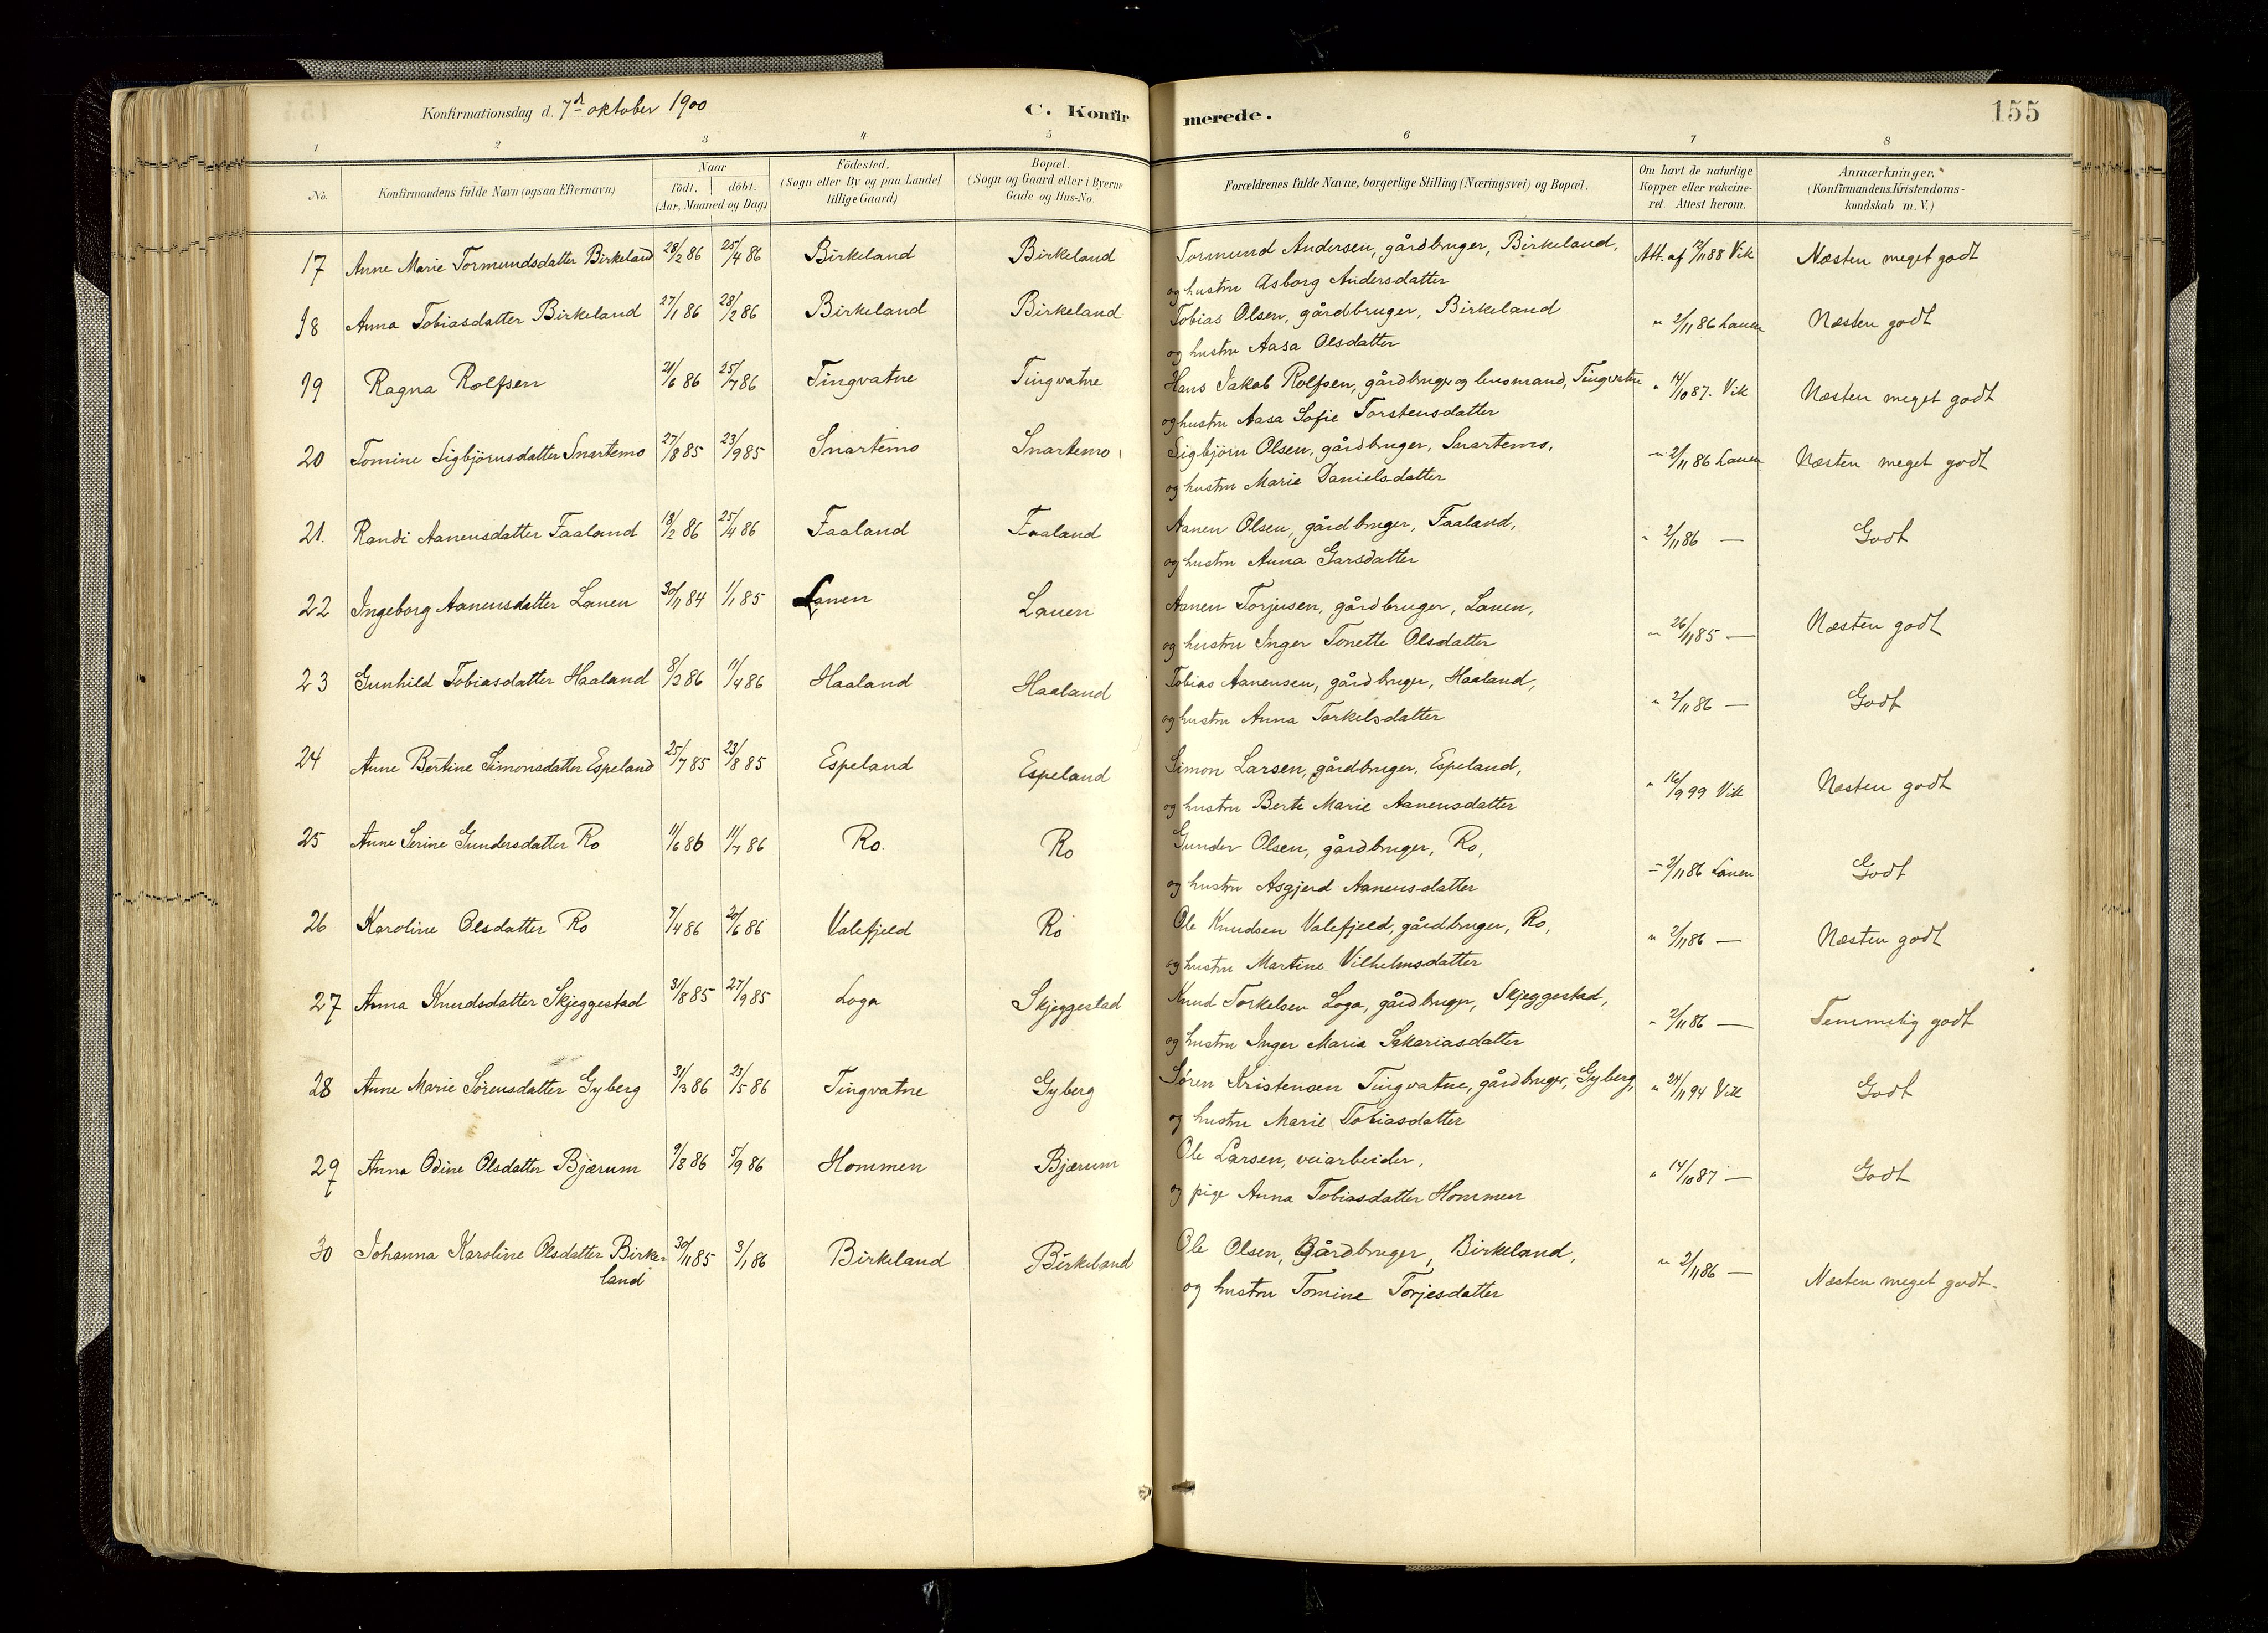 Konfirmationsdag d. 7de oktober 1900
C. Konfirmerede.
155
1 2 3 4 5 6 7 8
No.
Konfirmandens fulde Navn (ogsaa Efternavn)
Naar
födt. döbt.
(Aar, Maaned og Dag)
Födested.
(Sogn eller By og paa Landet
tillige Gaard)
Bopæl.
(Sogn og Gaard eller i Byerne
Gade og Hus-No.
Forældrenes fulde Navne, borgerlige Stilling (Næringsvei) og Bopæl.
Om havt de naturlige
Kopper eller vakcine-
ret. Attest herom.
Anmærkninger.
(Konfirmandens Kristendoms-
kundskab m. V.)
17 Anne Marie Tormundsdatter Birkeland 28/2 86 25/4 86 Birkeland Birkeland Tormund Andersen, gårdbruger, Birkeland, Att. af 12/11 88 Vik Næsten meget godt
og hustru Asborg Andersdatter
18 Anna Tobiasdatter Birkeland 27/1 86 28/2 86 Birkeland Birkeland Tobias Olsen, gårdbruger, Birkeland " 2/11 86 Lauen Næsten godt
og hustru Aasa Olsdatter
19 Ragna Rolfsen 21/6 86 25/7 86 Tingvatne Tingvatne Hans Jakob Rolfsen, gårdbruger og lensmand, Tingvatne " 14/10 87. Vik Næsten meget godt
og hustru Aasa Sofie Torstensdatter
20 Tomine Sigbjörnsdatter Snartemo 27/8 85 23/9 85 Snartemo Snartemo Sigbjörn Olsen, gårdbruger, Snartemo, " 2/11 86 Lauen Næsten meget godt
og hustru Marie Danielsdatter
21. Randi Aanensdatter Faaland 18/2 86 25/4 86 Faaland Faaland Aanen Olsen, gårdbruger, Faaland, " 2/11 86 — Godt
og hustru Anna Garsdatter
22 Ingeborg Aanensdatter Lauen 30/11 84 1/1 85 Lauen Lauen Aanen Torjusen, gårdbruger, Lauen, " 26/11 85 — Næsten godt
og hustru Inger Tonette Olsdatter
23 Gunhild Tobiasdatter Haaland 8/2 86 11/4 86 Haaland Haaland Tobias Aanensen, gårdbruger, Haaland, " 2/11 86 — Godt
og hustru Anna Torkelsdatter
24 Anne Bertine Simonsdatter Espeland 25/7 85 23/8 85 Espeland Espeland Simon Larsen, gårdbruger, Espeland, " 16/9 99 Vik Næsten godt
og hustru Berte Marie Aanensdatter
25 Anne Serine Gundersdatter Ro 11/6 86 11/7 86 Ro. Ro Gunder Olsen, gårdbruger, Ro, " 2/11 86 Lauen Godt
og hustru Asgjerd Aanensdatter
26 Karoline Olsdatter Ro 7/4 86 20/6 86 Valefjeld Ro Ole Knudsen Valefjeld, gårdbruger, Ro, " 2/11 86 — Næsten godt
og hustru Martine Vilhelmsdatter
27 Anna Knudsdatter Skjeggestad 31/8 85 27/9 85 Loga Skjeggestad Knud Torkelsen Loga, gårdbruger, Skjeggestad, " 2/11 86 — Temmelig godt
og hustru Inger Maria Sakariasdatter
28 Anne Marie Sörensdatter Gyberg 31/3 86 23/5 86 Tingvatne Gyberg Sören Kristensen Tingvatne, gårdbruger, Gyberg, " 24/11 94 Vik Godt
og hustru Marie Tobiasdatter
29 Anna Odine Olsdatter Bjærum 9/8 86 5/9 86 Hommen Bjærum Ole Larsen, veiarbeider, " 14/10 87 — Godt
og pige Anna Tobiasdatter Hommen
30 Johanna Karoline Olsdatter Birke- 30/11 85 3/1 86 Birkeland Birkeland Ole Olsen, Gårdbruger, Birkeland, " 2/11 86 — Næsten meget godt.
land og hustru Tomine Torjesdatter